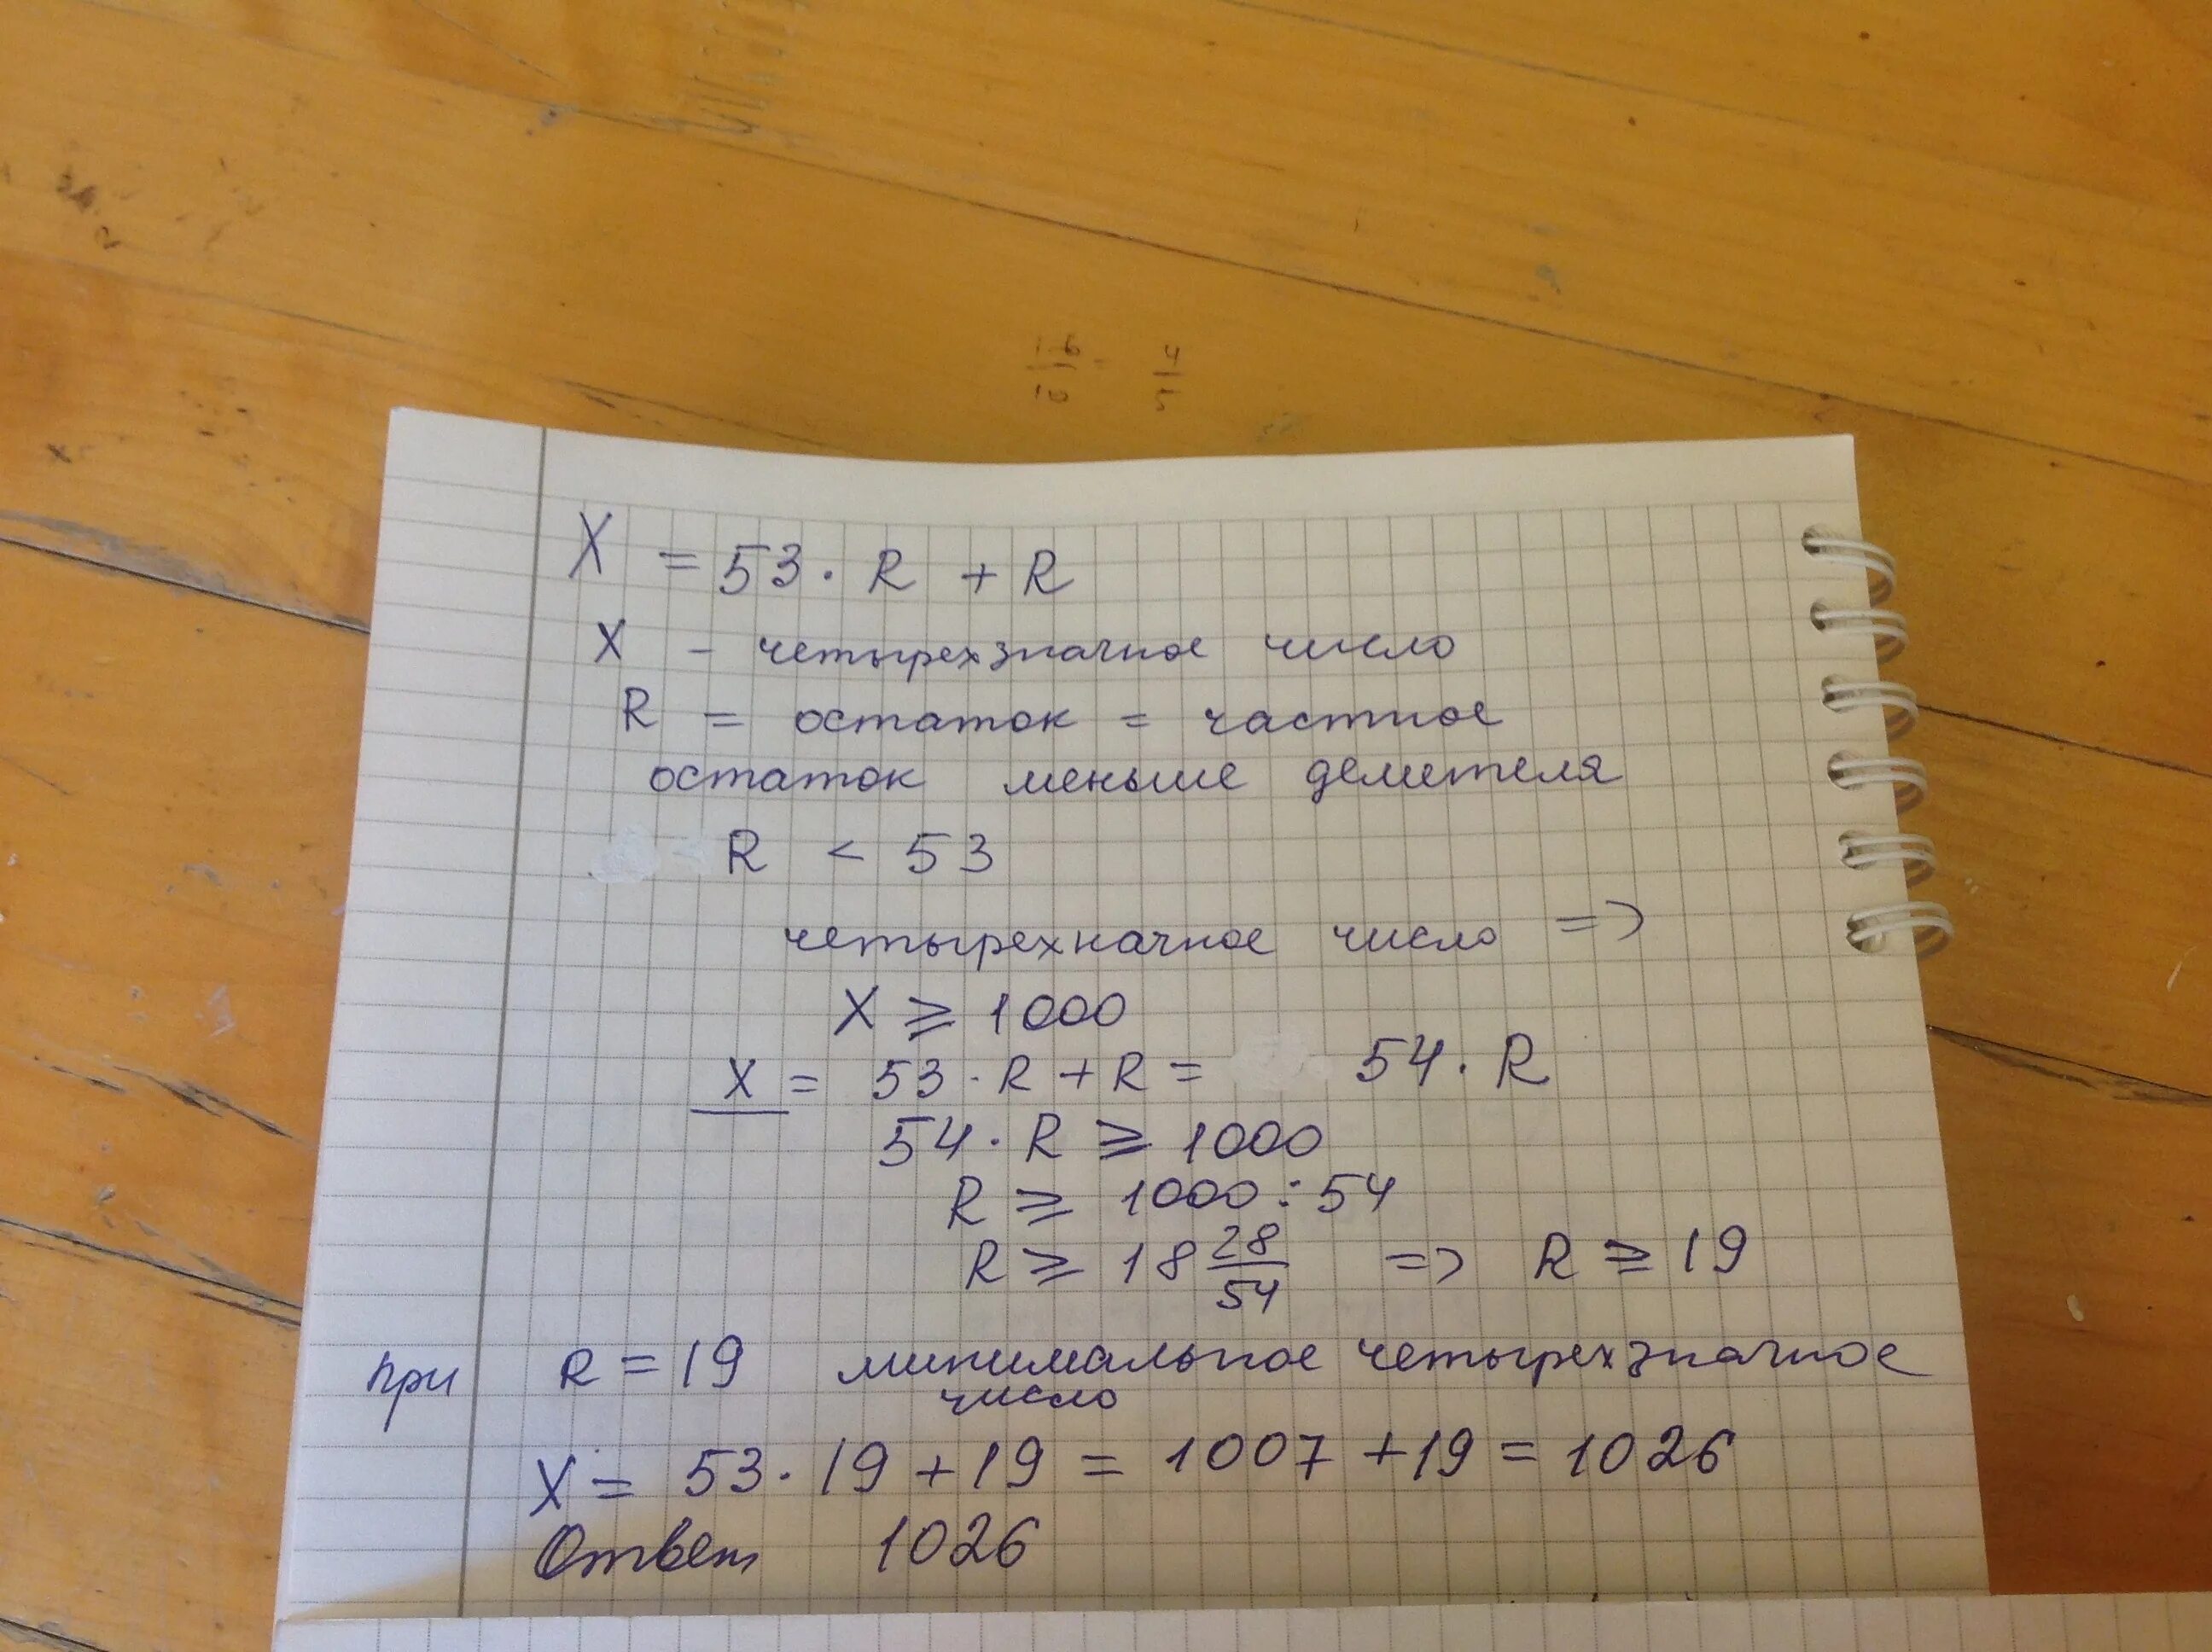 1.6/10 = 4/5
X = 53 · R + R
X - четырехзначное число
R = остаток = частное
остаток меньше делителя
R < 53
четырехначное число =>
X ⩾ 1000
X = 53 · R + R = 54 · R
54 · R ⩾ 1000
R ⩾ 1000 : 54
R ⩾ 18 28/54 => R ⩾ 19
при R = 19 минимальное четырехзначное
число
X = 53 · 19 + 19 = 1007 + 19 = 1026
Ответ 1026